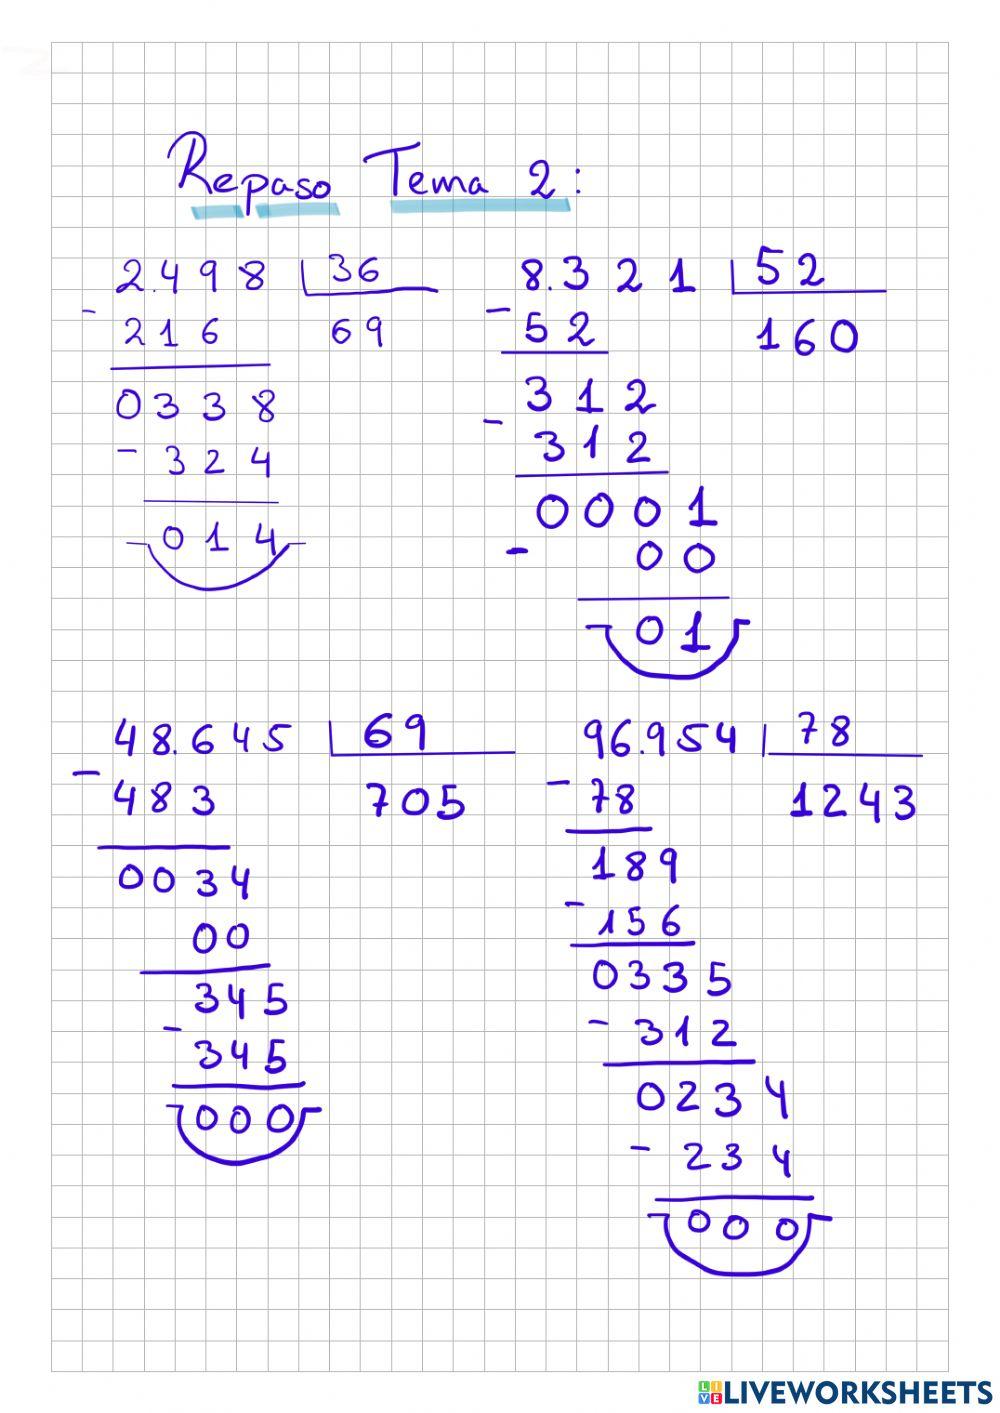 Repaso Tema 2:
2.498 36
- 216 69
0338
- 324
014
8.321 52
- 52 160
312
- 312
0001
- 00
01
48.645 69
- 483 705
0034
00
345
- 345
000
96.954 78
- 78 1243
189
- 156
0335
- 312
0234
- 234
000
LIVEWORKSHEETS